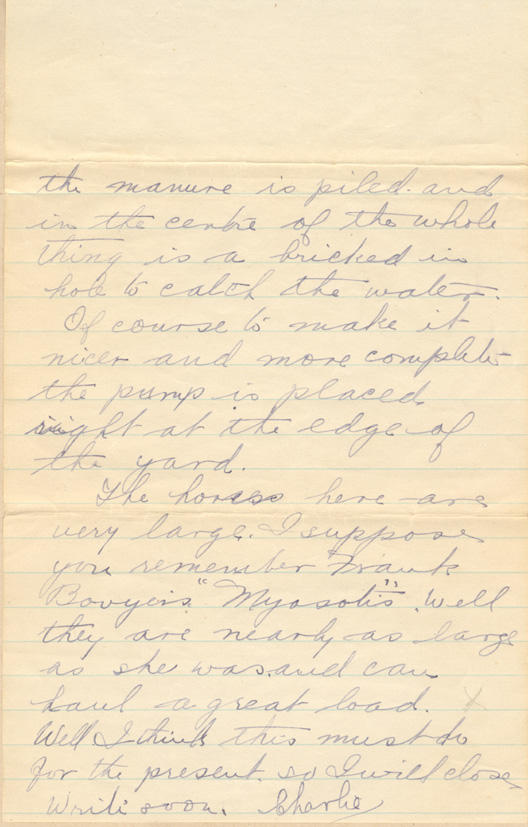 the manure is piled. and
in the centre of the whole
thing is a bricked in
hole to catch the water.
Of course to make it
nicer and more complete
the pump is placed
right at the edge of
the yard.
The horses here are
very large. I suppose
you remember Frank
Bovyers "Myosotis". Well
they are nearly as large
as she was and can
haul a great load.
Well I think this must do
for the present. so I will close
Write soon. Charlie